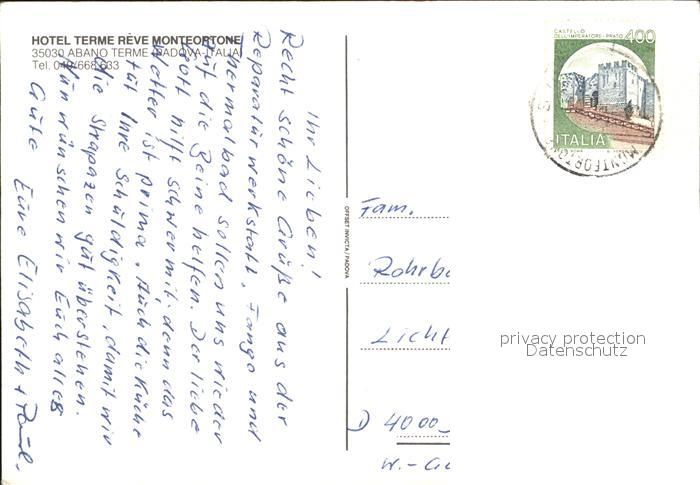 HOTEL TERME RÊVE MONTEORTONE
35030 ABANO TERME PADOVA-ITALIA
Tel. 049/668633
Ihr Lieben!
Recht schöne Grüße aus der
Reparaturwerkstatt, Fango und
Thermalbad sollen uns wieder
auf die Beine helfen. Der liebe
Gott hilft schwer mit, denn das
Wetter ist prima. Auch die Küche
tut Ihre Schuldigkeit, damit wir
die Strapazen gut überstehen.
Nun wünschen wir Euch alles
Gute Eure Elisabeth +
OFFSET INVICTA/PADOVA
CASTELLO
DELL'IMPERATORE-PRATO 400
ITALIA
MONTEORTONE
Fam.
Rohrb
Licht
D 4000
W.-
privacy protection
Datenschutz